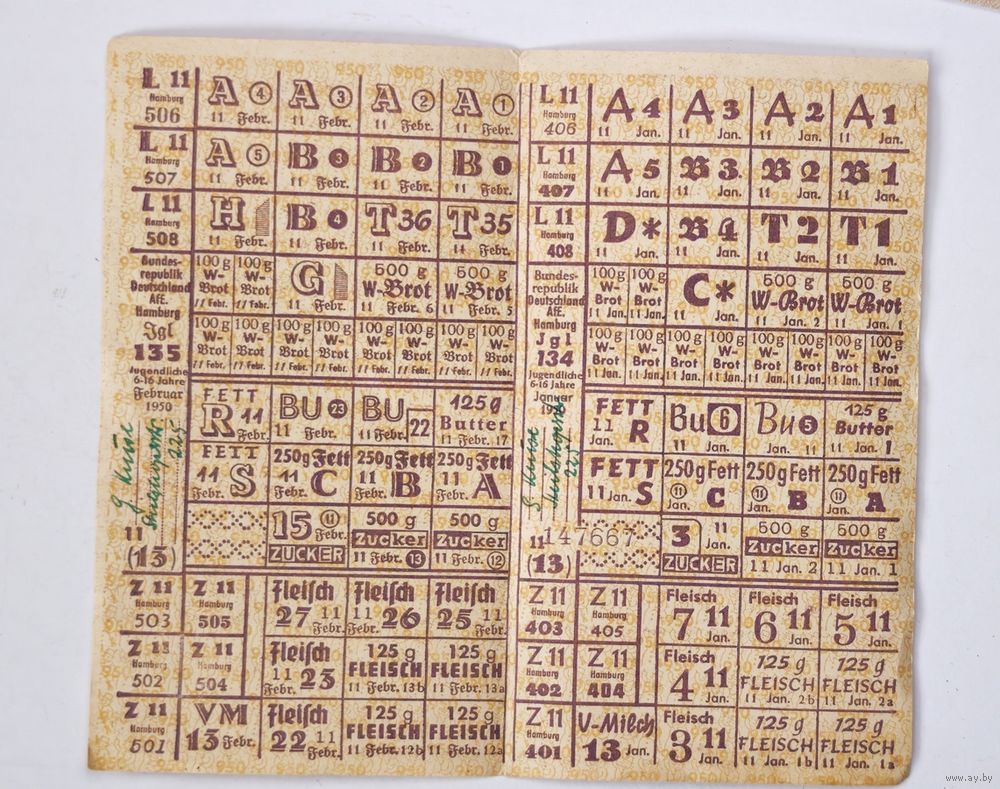 L 11 Hamburg 506 A 4 11 Febr. A 3 11 Febr. A 2 11 Febr. A 1 11 Febr.
L 11 Hamburg 507 A 5 11 Febr. B 3 11 Febr. B 2 11 Febr. B 1 11 Febr.
L 11 Hamburg 508 H 11 Febr. B 4 11 Febr. T 36 11 Febr. T 35 11 Febr.
Bundes-
republik
Deutschland
Aff.
Hamburg
Jgl
135
Jugendliche
6-16 Jahre
Februar
1950
11
(13)
100 g W- Brot 11 Febr. 100 g W- Brot 11 Febr. G 11 Febr. 500 g W-Brot 11 Febr. 6 500 g W-Brot 11 Febr. 5
100 g W- Brot 11 Febr. 100 g W- Brot 11 Febr. 100 g W- Brot 11 Febr. 100 g W- Brot 11 Febr. 100 g W- Brot 11 Febr. 100 g W- Brot 11 Febr. 100 g W- Brot 11 Febr. 100 g W- Brot 11 Febr.
FETT R 11 Febr. BU 23 11 Febr. BU 22 11 Febr. 125 g Butter 11 Febr. 17
FETT 11 Febr. S 250g Fett 11 Febr. C 250g Fett 11 Febr. B 250g Fett 11 Febr. A
15 11 Febr. ZUCKER 500 g Zucker 11 Febr. 13 500 g Zucker 11 Febr. 12
Z 11 Hamburg 503 Z 11 Hamburg 505 Fleisch 27 11 Febr. Fleisch 11 Febr. 26 Fleisch 25 11 Febr.
Z 11 Hamburg 502 Z 11 Hamburg 504 Fleisch 11 Febr. 23 125 g FLEISCH 11 Febr. 13b 125 g FLEISCH 11 Febr. 13a
Z 11 Hamburg 501 VM 13 Febr. Fleisch 22 11 Febr. 125 g FLEISCH 11 Febr. 12b 125 g FLEISCH 11 Febr. 12a
L 11 Hamburg 406 A 4 11 Jan. A 3 11 Jan. A 2 11 Jan. A 1 11 Jan.
L 11 Hamburg 407 A 5 11 Jan. B 3 11 Jan. B 2 11 Jan. B 1 11 Jan.
L 11 Hamburg 408 D* 11 Jan. B 4 11 Jan. T 2 11 Jan. T 1 11 Jan.
Bundes-
republik
Deutschland
Aff.
Hamburg
Jgl
134
Jugendliche
6-16 Jahre
Januar
11
(13)
100 g W- Brot 11 Jan. 100 g W- Brot 11 Jan. C* 11 Jan. 500 g W-Brot 11 Jan. 2 500 g W-Brot 11 Jan. 1
100 g W- Brot 11 Jan. 100 g W- Brot 11 Jan. 100 g W- Brot 11 Jan. 100 g W- Brot 11 Jan. 100 g W- Brot 11 Jan. 100 g W- Brot 11 Jan. 100 g W- Brot 11 Jan. 100 g W- Brot 11 Jan.
FETT 11 Jan. R Bu 6 11 Jan. Bu 5 Jan. 11 125 g Butter 11 Jan. 1
FETT 11 Jan. S 250g Fett 11 Jan. C 250g Fett 11 Jan. B 250g Fett 11 Jan. A
147667 3 11 Jan. ZUCKER 500 g Zucker 11 Jan. 2 500 g Zucker 11 Jan. 1
Z 11 Hamburg 403 Z 11 Hamburg 405 Fleisch 7 11 Jan. Fleisch 6 11 Jan. Fleisch 5 11 Jan.
Z 11 Hamburg 402 Z 11 Hamburg 404 Fleisch 4 11 Jan. 125 g FLEISCH 11 Jan. 2b 125 g FLEISCH 11 Jan. 2a
Z 11 Hamburg 401 V-Milch 13 Jan. Fleisch 3 11 Jan. 125 g FLEISCH 11 Jan. 1b 125 g FLEISCH 11 Jan. 1a
www.ay.by